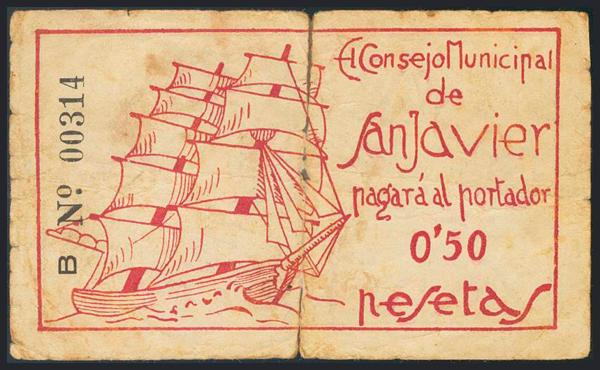 B Nº 00314
El Consejo Municipal
de
San Javier
pagará al portador
0'50
pesetas